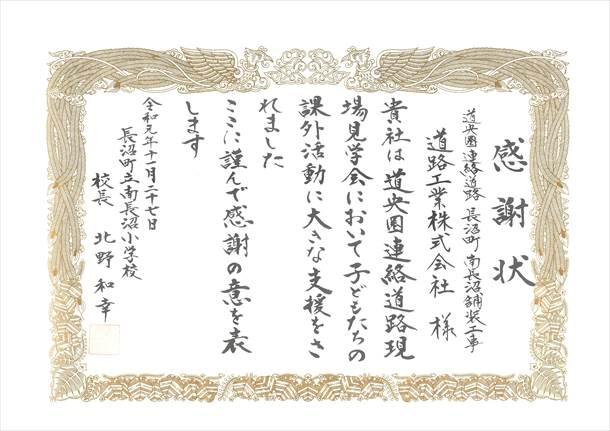 感謝状
道央圏連絡道路 長沼町 南長沼舗装工事
道路工業株式会社 様
貴社は道央圏連絡道路現
場見学会において子どもたちの
課外活動に大きな支援をさ
れました
ここに謹んで感謝の意を表
します
令和元年十一月二十七日
長沼町立南長沼小学校
校長 北野和幸